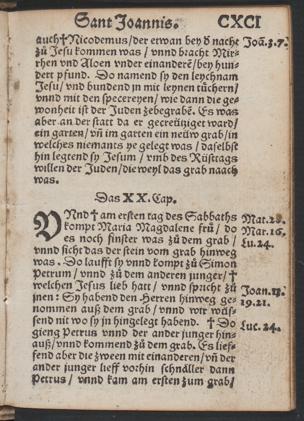 Sant Joannis. CXCI
auch†Nicodemus/der etwan bey d̕ nache Joā.3.7.
zů Jesu kommen was / vnnd bracht Mir-
rhen vnd Aloen vnder einanderē/bey hun-
dert pfund. Do namend sy den leychnam
Jesu/vnd bundend jn mit leynen tůchern/
vnnd mit den specereyen/wie dann die ge-
wonheit ist der Juden zebegrabē. Es was
aber an der statt da er gecreütziget ward/
ein garten/vn̄ im garten ein neüw grab/in
welches niemants ye gelegt was / daselbst
hin legtend sy Jesum / vmb des Rüsttags
willen der Juden/dieweyl das grab naach
was.
Das XX. Cap.
VNnd † am ersten tag des Sabbaths Mat.28.
kompt Maria Magdalene frů/ do Mar.16.
es noch finster was zů dem grab / Lu.24.
vnnd sicht das der stein vom grab hinweg
was. Do laufft sy vnnd kompt zů Simon
Petrum/vnnd zů dem anderen junger/†
welchen Jesus lieb hatt / vnnd spricht zů Joan.13.
jnen: Sy habend den Herren hinweg ge- 19.21.
nommen auß dem grab / vnnd wir wüs-
send nit wo sy jn hingelegt habend. † Do Luc.24.
gieng Petrus vnnd der ander junger hin-
auß/vnnd kommend zů dem grab. Es lief-
fend aber die zween mit einanderen/vn̄ der
ander junger lieff vorhin schnäller dann
Petrus / vnnd kam am ersten zum grab/